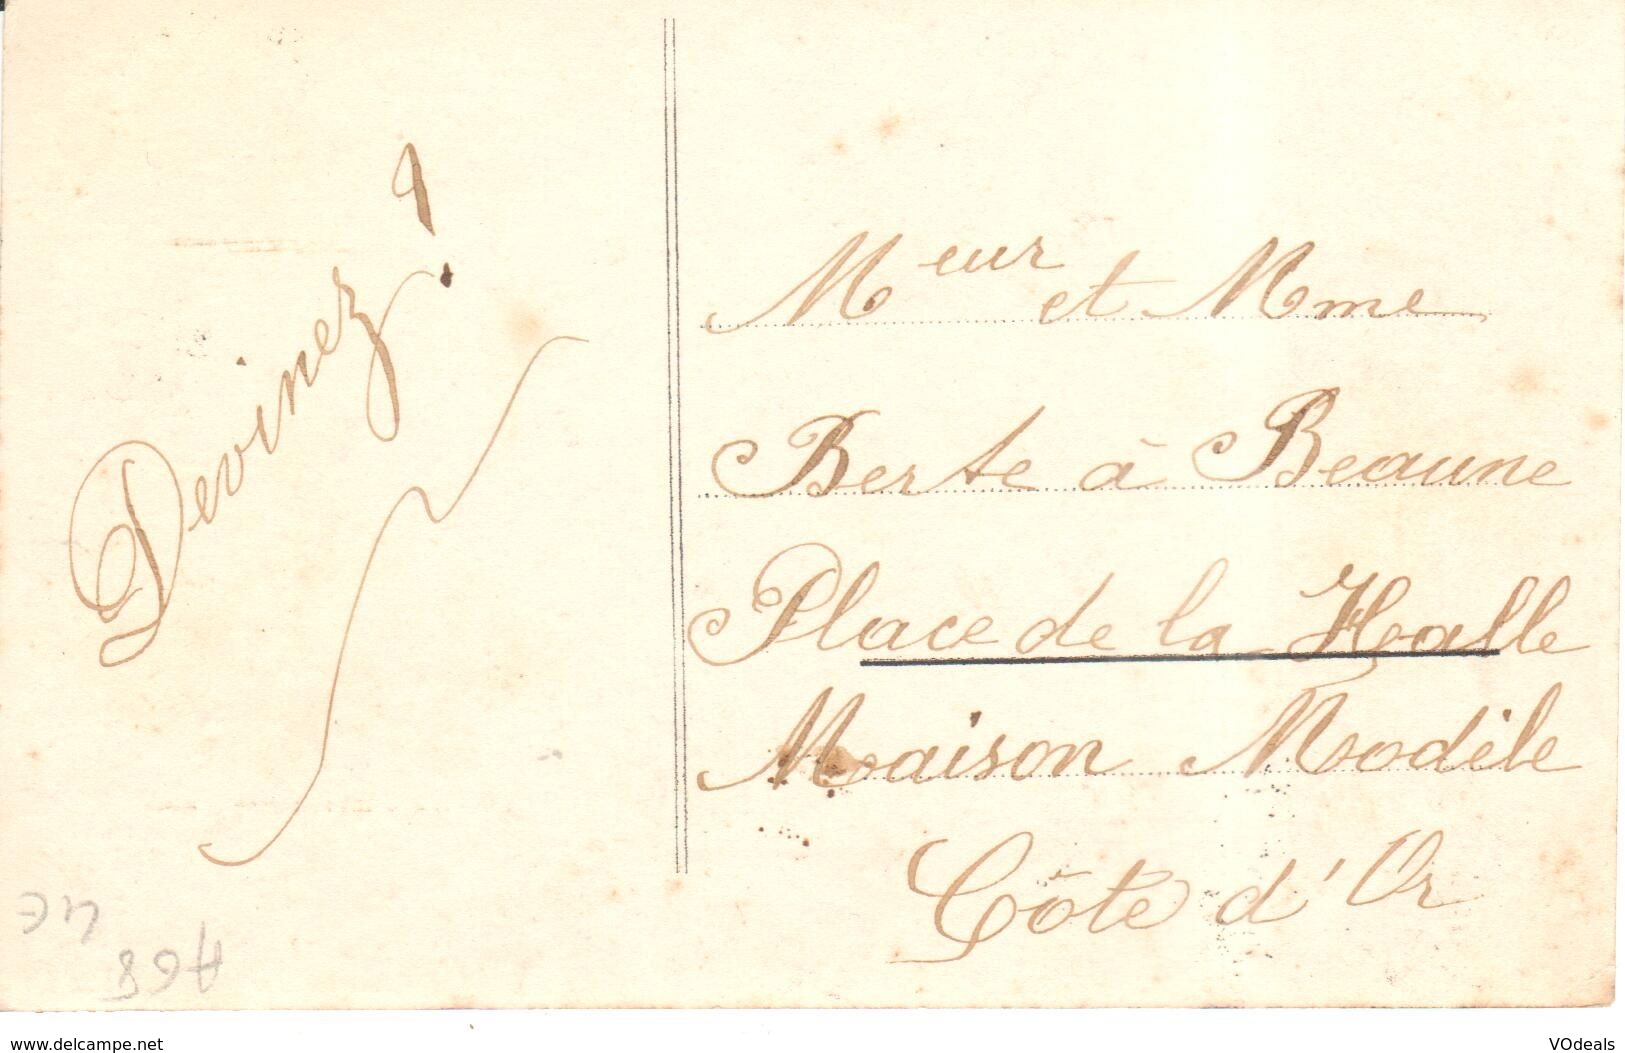 Devinez !
Meur et Mme
Berte à Beaune
Place de la Halle
Maison Modèle
Côte d'Or
4€
A68
www.delcampe.net
VOdeals